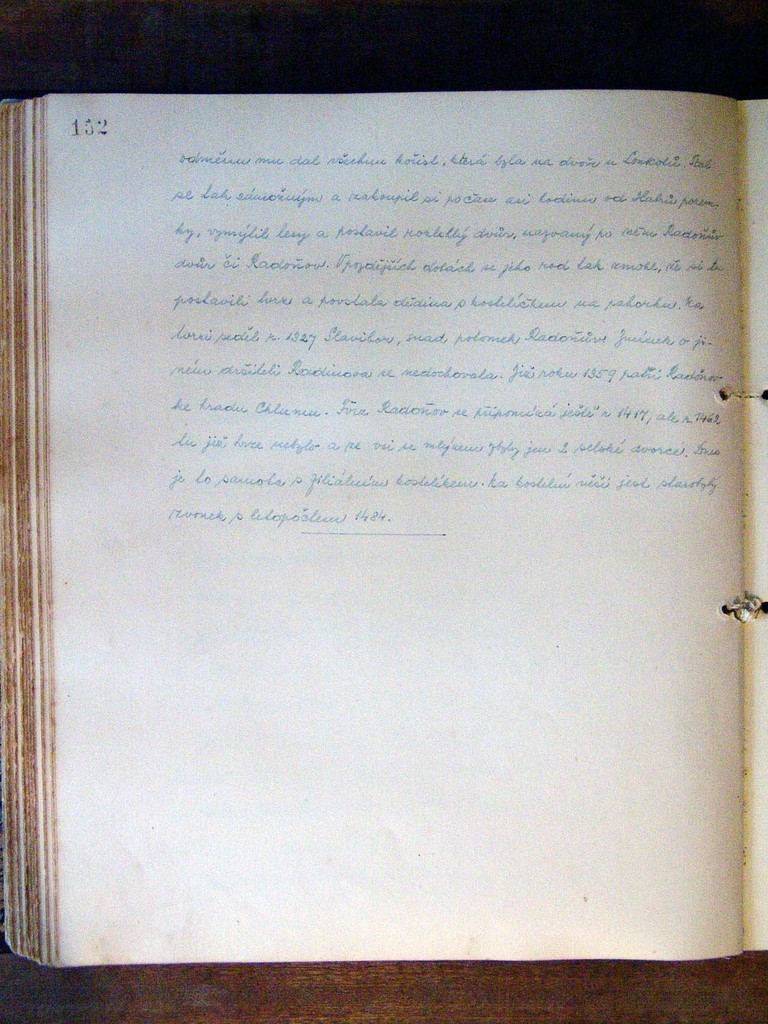 152
odměnu mu dal všechnu kořist, která byla na dvoře u Loskotů. Stal
se tak zámožným a zakoupil si počase asi hodinu od Habrů pozem-
ky, vymýtil lesy a postavil rozlehlý dvůr, nazvaný po něm Radoňův
dvůr či Radoňov. V pozdějších dobách se jeho rod tak zmohl, že si tu
postavili tvrz a povstala dědina s kostelíčkem na pahorku. Na
tvrzi seděl r. 1327 Slavibor, snad potomek Radoňův. Zmínek o ji-
ném držiteli Radinova se nedochovala. Již roku 1359 patří Radoňov
ke hradu Chlumu. Tvrz Radoňov se připomíná ještě r. 1417, ale r. 1462
tu již tvrze nebylo a ze vsi se mlýnem zbyly jen 2 selské dvorce. Dnes
je to samota s filiálním kostelíkem. Na kostelní věži jest starobylý
zvonek s letopočtem 1484.